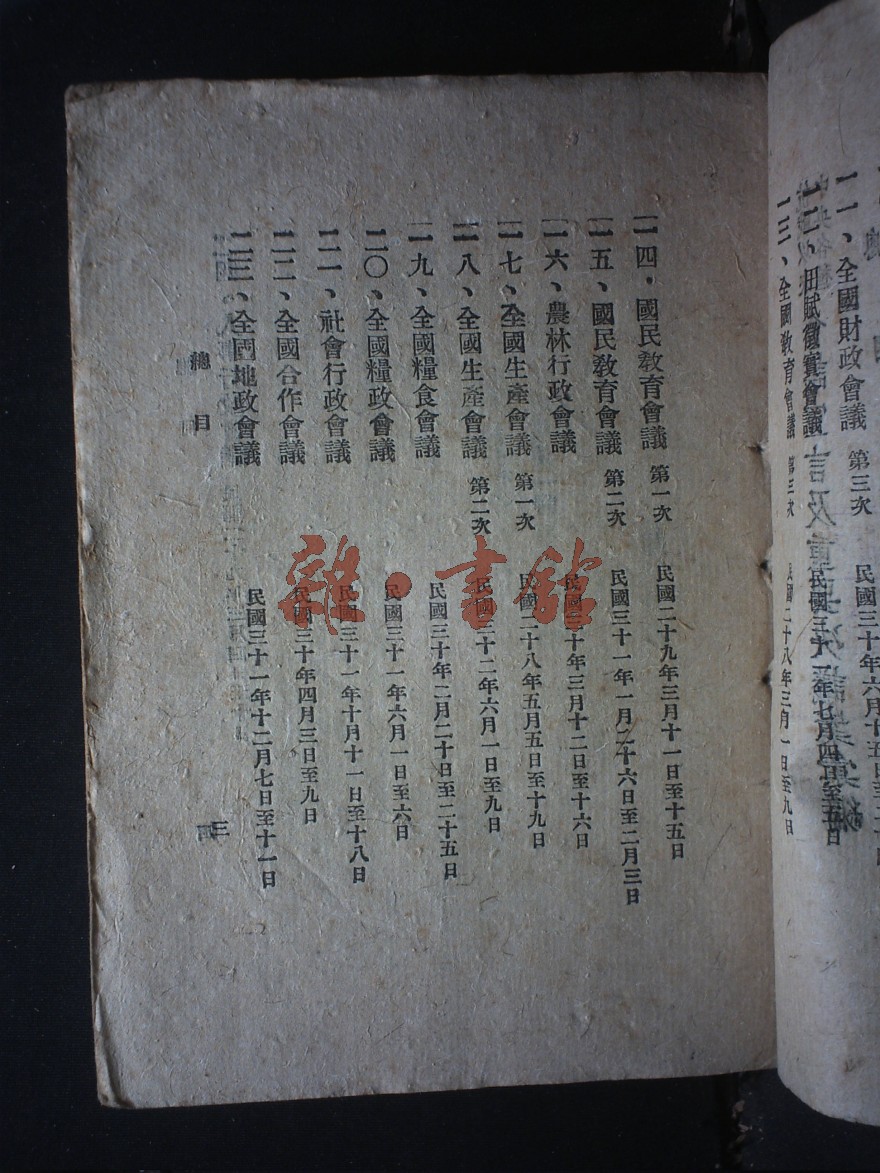 一一、全國財政會議 第三次
一二、田賦徵實會議
一三、全國教育會議 第三次 民國二十八年三月一日至九日
一四、國民教育會議 第一次 民國二十九年三月十一日至十五日
一五、國民教育會議 第二次 民國三十一年一月二十六日至二月三日
一六、農林行政會議 民國三十年三月十二日至十六日
一七、全國生產會議 第一次 民國二十八年五月五日至十九日
一八、全國生產會議 第二次 民國三十二年六月一日至九日
一九、全國糧食會議 民國三十年二月二十日至二十五日
二〇、全國糧政會議 民國三十一年六月一日至六日
二一、社會行政會議 民國三十一年十月十一日至十八日
二二、全國合作會議 民國三十年四月三日至九日
二三、全國地政會議 民國三十一年十二月七日至十一日
總目
三
雜·書館